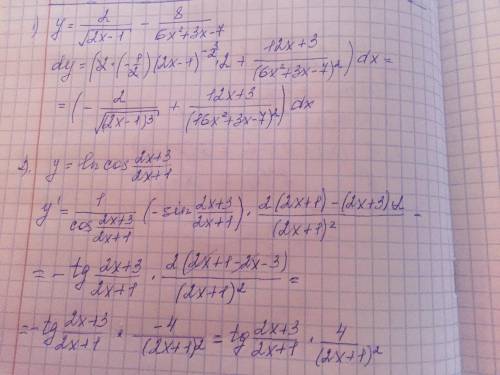 1) y = 2/√(2x-1) - 8/(6x²+3x-7)
dy = (2·(-1/2)(2x-1)^(-3/2)·2 + (12x+3)/(6x²+3x-7)²) dx =
= (-2/√((2x-1)3) + (12x+3)/(16x²+3x-7)²) dx
2). y = ln cos (2x+3)/(2x+1)
y' = 1/(cos (2x+3)/(2x+1)) · (-sin (2x+3)/(2x+1)) · (2(2x+1) - (2x+3)·2)/(2x+1)² -
= -tg (2x+3)/(2x+1) · (2(2x+1-2x-3))/(2x+1)² =
= -tg (2x+3)/(2x+1) · (-4)/(2x+1)² = tg (2x+3)/(2x+1) · 4/(2x+1)²